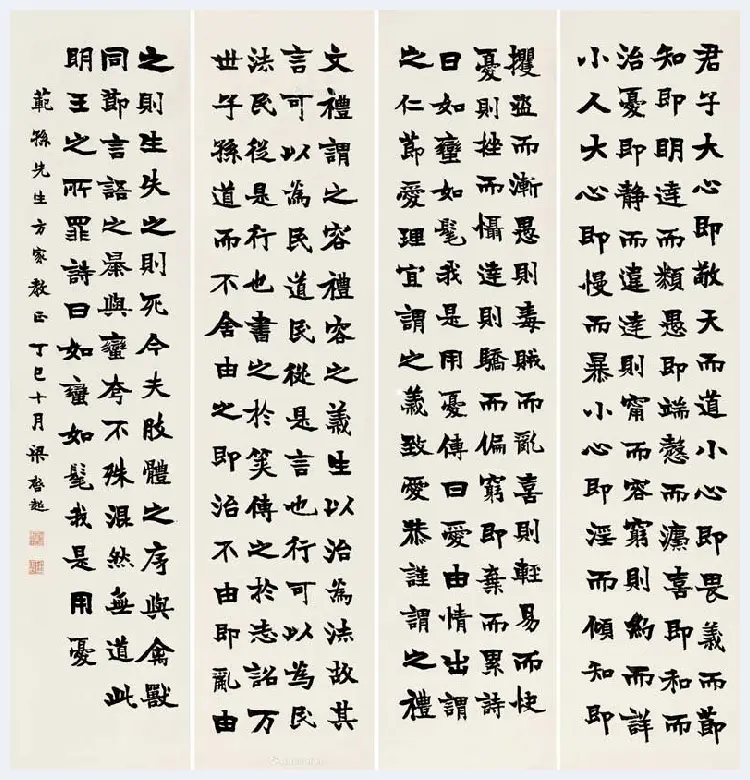 君子大心即敬天而道小心即畏義而節
知即明達而類愚即端愨而灋喜即和而
治憂即静而違達則甯而容窮則約而詳
小人大心即慢而暴小心即淫而傾知即
攫盜而漸愚則毒賊而亂喜則輕易而快
憂則挫而懾達則驕而偏窮即棄而累詩
曰如蠻如髦我是用憂傳曰愛由情出謂
之仁節愛理宜謂之義致愛恭謹謂之禮
文禮謂之容禮容之義生以治為法故其
言可以為民道民從是言也行可以為民
法民從是行也書之於筴傳之於志詔万
世子孫道而不舍由之即治不由即亂由
之則生失之則死今夫肢體之序與禽獸
同節言語之暴與蠻夸不殊混然無道此
明王之所罪詩曰如蠻如髦我是用憂
範孫先生方家教正丁巳十月梁啓超